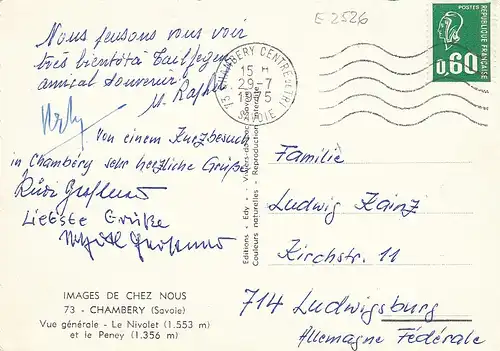 E 2526
Nous pensons vous voir
très bientôt à
amical souvenir.
Von einem Kurzbesuch
in Chambéry sehr herzliche Grüße
Liebste Grüße
73 CHAMBERY CENTRE
15 H
29-7
1975
SAVOIE
POSTES
REPUBLIQUE FRANÇAISE
0,60
Couleurs naturelles - Reproduction interdite
Familie
Ludwig Kainz
Kirchstr. 11
714 Ludwigsburg
Allemagne Fédérale
IMAGES DE CHEZ NOUS
73 - CHAMBERY (Savoie)
Vue générale - Le Nivolet (1.553 m)
et le Peney (1.356 m)